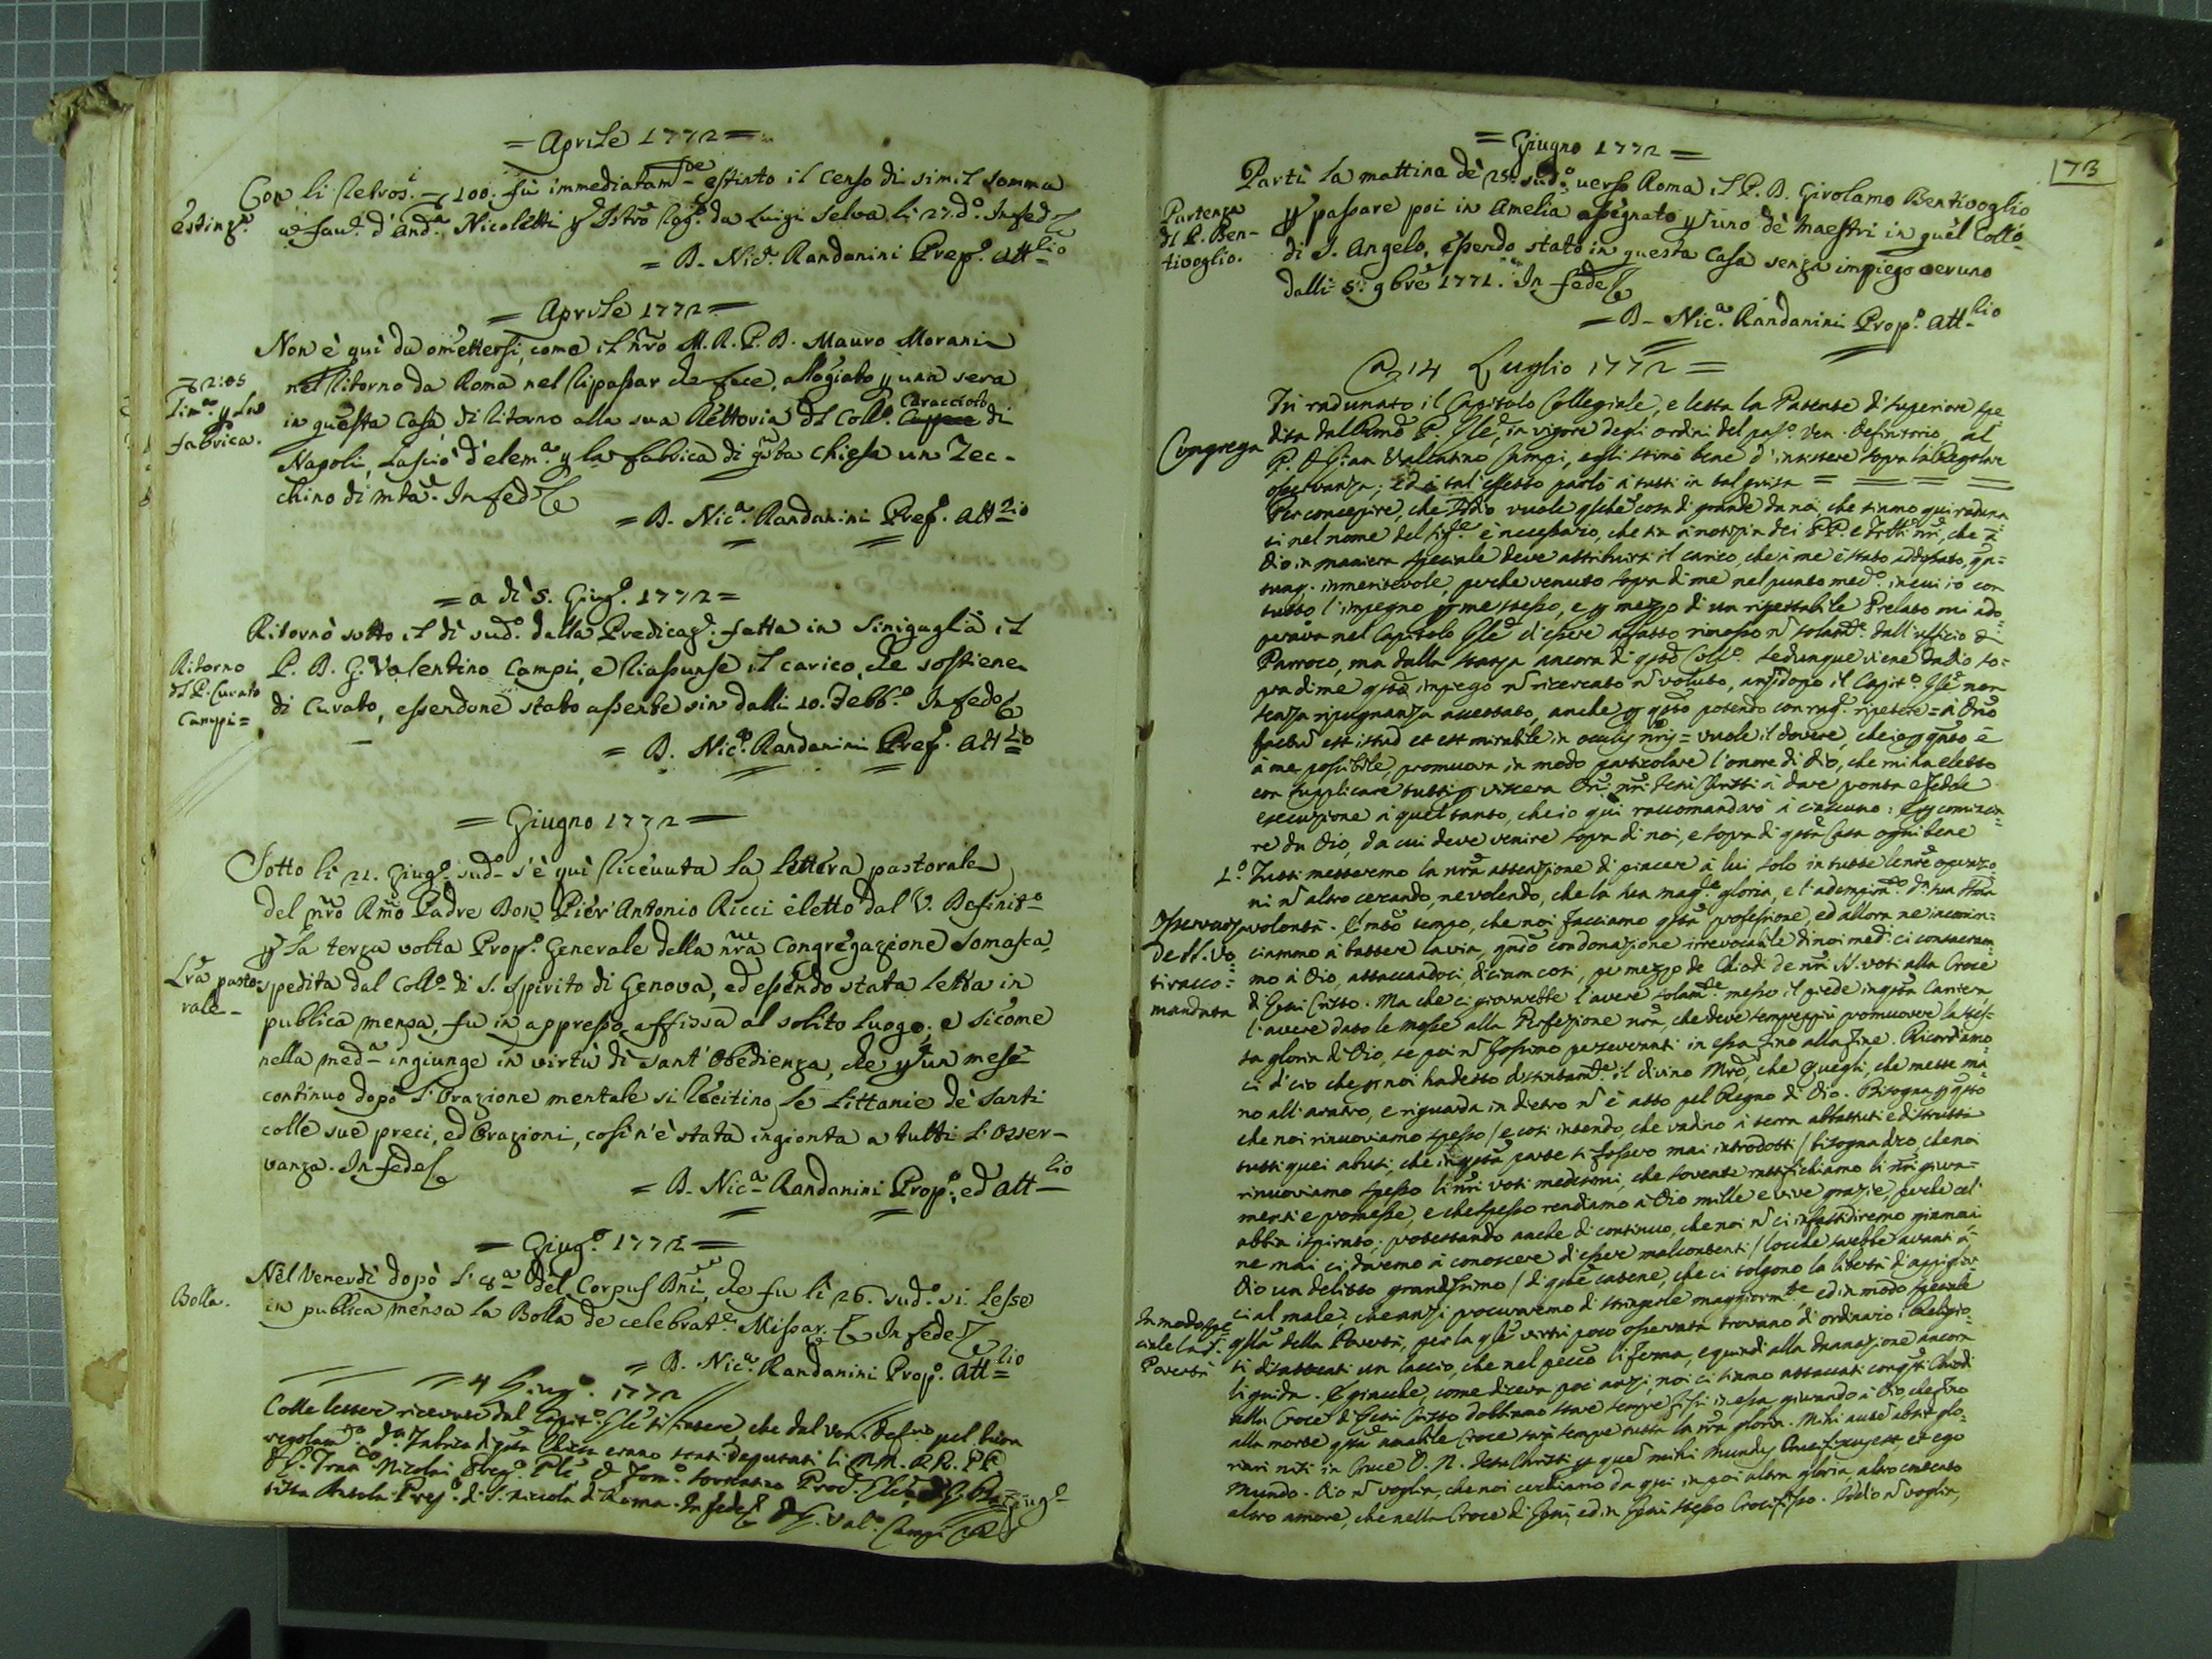 = Aprile 1772 =
Con li retros.i 100. fù immediatam.te estinto il Censo di simil somma
Estinz.e
a fav.e d'And.a Nicoletti p Istro rog.o da Luigi Selva li 27. d.o In fede
= D. Nic.a Randanini Prep.o Att.lio
= Aprile 1772 =
Non è quì da omettersi, come il nro M. R. P. D. Mauro Morani
nel ritorno da Roma nel ripassar che fece, allogiato p una sera
2:05
Lim.a p la
fabrica.
in questa Casa, di ritorno alla sua Rettoria del Coll.o Caracciolo di
Napoli, lasciò d'elem.a p la fabbrica di qsta Chiesa un Zec-
chino di mta. In fede
= D. Nic.a Randanini Prep.o Att.lio
= a dì 5. Giug.o 1772 =
Ritornò sotto il dì sud.o dalla Predicaz.e fatta in Sinigaglia il
Ritorno
del P. Curato
Campi =
P. D. G. Valentino Campi, e riassunse il carico, che sostiene
di Curato, essendone stato assente sin dalli 10. Febb.o In fede
= D. Nic.a Randanini Prep.o Att.lio
= Giugno 1772 =
Sotto li 21. Giug.o sud.o s'è quì ricevuta la lettera pastorale
del nro Rmo Padre Don Pier'Antonio Ricci eletto dal V. Definit.o
p la terza volta Prep.o Generale della nra Congregazione Somasca,
Lra pasto-
rale-
spedita dal Coll.o di S. Spirito di Genova, ed essendo stata letta in
publica mensa, fu in appresso affissa al solito luogo; e sicome
nella med.a ingiunge in virtù di sant'Obedienza, che p un mese
continuo dopo l'Orazione mentale si recitino le Littanie de' Santi
colle sue preci, ed Orazioni, così n'è stata ingionta a tutti l'osser-
vanza. In fede
= D. Nic.a Randanini Prop.o, ed Att.lio
= Giug.o 1772 =
Nel Venerdì dopò l'8.a del Corpus Dni, che fu li 26. sud.o si lesse
Bolla.
in publica mensa la Bolla de celebrat.e Missar. In fede
= D. Nic.a Randanini Prop.o Att.lio
= 4 Giug.o 1772
Colle lettere ricevute dal Capit.o Gle si intese che dal Ven. Def.rio pel buon
regolam.to d.a Fabrica di qsta Chiesa erano stati deputati li MM. RR. PP.
Nicolai Prep.o Ple, D. Giac.o
Prep.o di S. Niccola di Roma. In fede D. G. Val.o Campi
173
= Giugno 1772 =
Partì la mattina de' 25. sud.o verso Roma il P. D. Girolamo Bentivoglio
Partenza
del P. Ben-
tivoglio.
p passare poi in Amelia assegnato p uno de' Maestri in quel Coll.o
di S. Angelo, essendo stato in questa Casa senza impiego veruno
dalli 5. 9bre 1771. In fede
= D. Nic.a Randanini Prop.o Att.lio
A 14 Luglio 1772 =
Fu radunato il Capitolo Collegiale, e letta la Patente di Superiore spe-
dita dal Rmo P. Gle, in vigore degli ordini del pas.o Ven. Definitorio, al
Congrega
P. D. Gian Valentino Campi, egli stimò bene d'insistere sopra la Regolare
osservanza; ed a tal'effetto parlò a tutti in tal guisa =
Per concepire, che Iddio vuole qlche cosa di grande da noi, che siamo qui raduna-
ti nel nome del Sig.e è necessario, che sia a notizia dei PP. e Frlli nri, che a
Dio in maniera speciale deve attribuirsi il carico, che a me è stato addossato, qn-
tunq. immeritevole, perche venuto sopra di me nel punto med.o in cui io con
tutto l'impegno p me stesso, e p mezzo di un rispettabile Prelato mi ado-
perava nel Capitolo Gle d'essere affatto rimosso n solam.te dall'ufficio di
Parroco, ma dalla stanza ancora di qsto Coll.o Se dunque viene da Dio so-
pra di me qsto impiego n ricercato n voluto, anzi dopo il Capit.o Gle non
senza ripugnanza accettato, anche p qsto potendo con rag.e ripetere = a Dno
factu est istud et est mirabile in oculis nris = vuole il dovere, che io p qnto è
a me possibile, promuova in modo particolare l'onore di Dio, che mi ha eletto
con supplicare tutti p viscera Dni nri Jesu Christi a dare pronta e fedele
esecuzione a quel tanto, che io qui raccomanderò a ciascuno: e p comincia-
re da Dio, da cui deve venire sopra di noi, e sopra di qsta Casa ogni bene
1.o Tutti metteremo la nra attenzione di piacere a lui solo in tutte le nre operazio-
ni n altro cercando, ne volendo, che la sua mag.e gloria, e l'adempim.to d.a sua
Osservanza
de SS. Vo-
ti racco-
mandata
volontà. È molto tempo, che noi facciamo qsta professione, ed allora ne incomin-
ciammo a battere la via, qndo con donazione irrevocabile di noi med.i ci consacram-
mo a Dio, attaccandoci, diciam così, per mezzo de Chiodi de nri SS. voti alla Croce
di Gesù Cristo. Ma che ci gioverebbe l'avere solam.te messo il piede in qsta Carriera,
l'avere dato le mosse alla Perfezione nra, che deve sempre più promuovere la stes-
sa gloria di Dio, se poi n fossimo perseveranti in essa fino alla fine. Ricordiamo-
ci di ciò che p noi ha detto distintam.te il divino Mro, che quegli, che mette ma-
no all'aratro, e riguarda in dietro n è atto pel Regno di Dio. Bisogna p qsto
che noi rinuoviamo spesso / e così intendo, che vadino a terra abbattuti e distrutti
tutti quei abusi, che in qsta parte si fossero mai introdotti / bisogna dico, che noi
rinuoviamo spesso li nri voti medesimi, che sovente ratifichiamo li nri giura-
menti e promesse, e che spesso rendiamo a Dio mille e vive grazie, perche cel'
abbia ispirato; protestando anche di continuo, che noi n ci infastidiremo giammai
ne mai ci daremo a conoscere d'essere malcontenti / locche sarebbe avanti a
Dio un delitto grandissimo / di qste catene, che ci tolgono la libertà di appigliar-
ci al male, che anzi procuraremo di stringerle maggiorm.te, ed in modo speciale
In modo spe-
ciale la S.
Povertà
qlla della Povertà, per la qle virtù poco osservata trovano di ordinario i Religio-
si disattenti un laccio, che nel pecco li ferma, e quindi alla dannazione ancora
li guida. E giacche, come diceva poc'anzi, noi ci siamo attaccati con qsti Chiodi
alla Croce di Gesù Cristo dobbiamo stare sempre fissi in essa, giurando a Dio che fino
alla morte qsta amabile Croce sarà sempre tutta la nra gloria. Mihi autem absit glo-
riari nisi in Cruce D. N. Jesu Christi p quem mihi Mundus Crucifixus est, et ego
Mundo. Dio n voglia, che noi cerchiamo da qui in poi altra gloria, altro contento
altro amore, che nella Croce di Gesù, ed in Gesù stesso Crocifisso. Iddio n voglia,